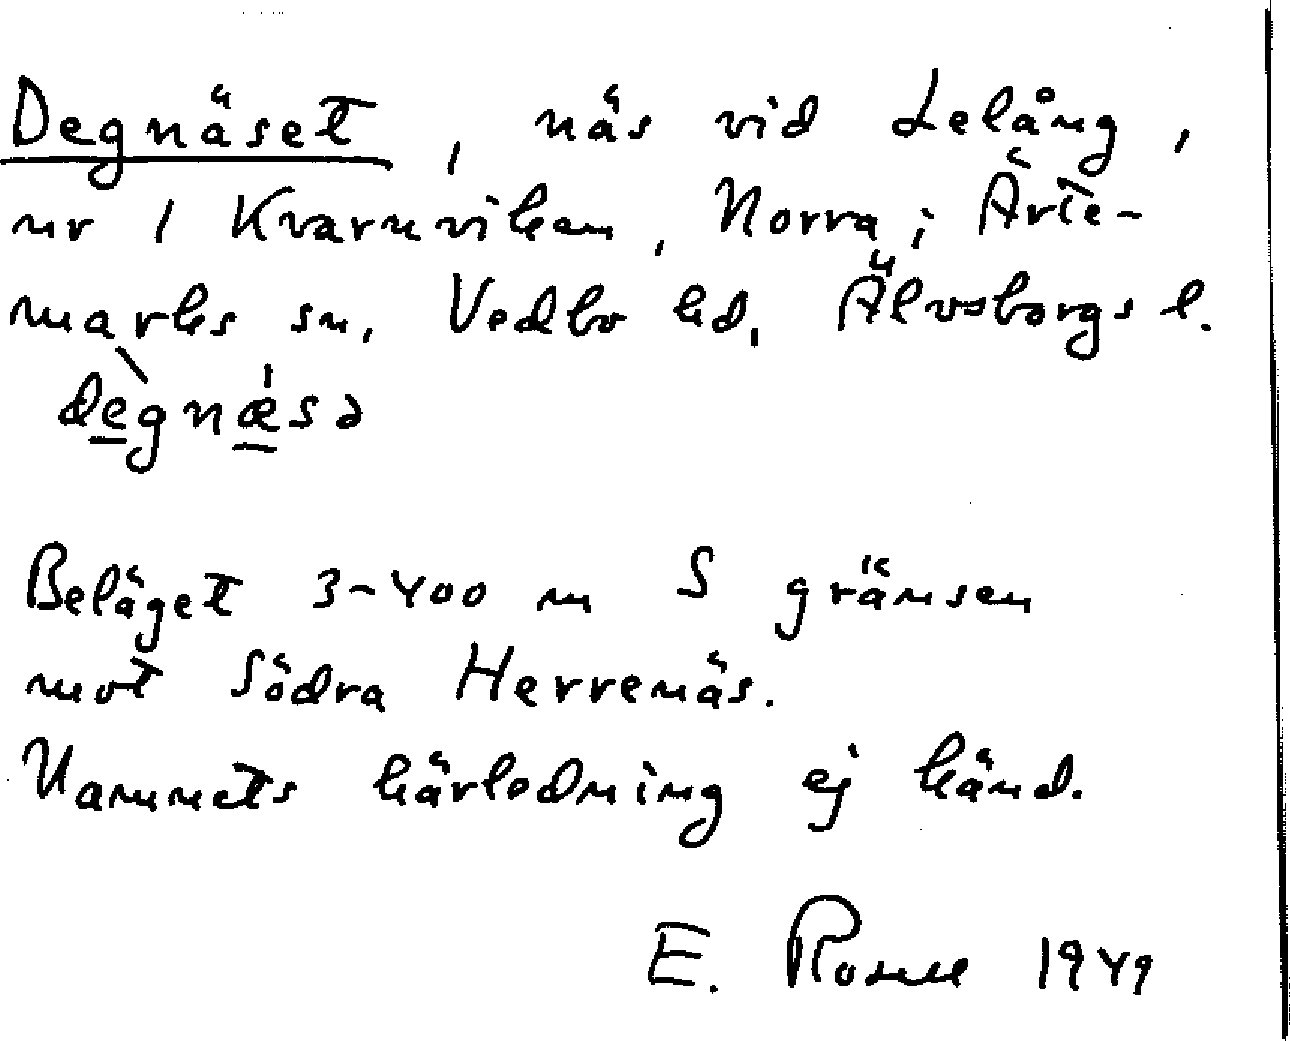 Degnäset, näs vid Lelång,
nr 1 Kvarnviken, Norra; Ärte-
marks sn, Vedbo hd, Älvsborgs l.
dègnǽsə
Beläget 3-400 m S gränsen
mot Södra Herrenäs.
Namnets härledning ej känd.
E. Rosell 1949